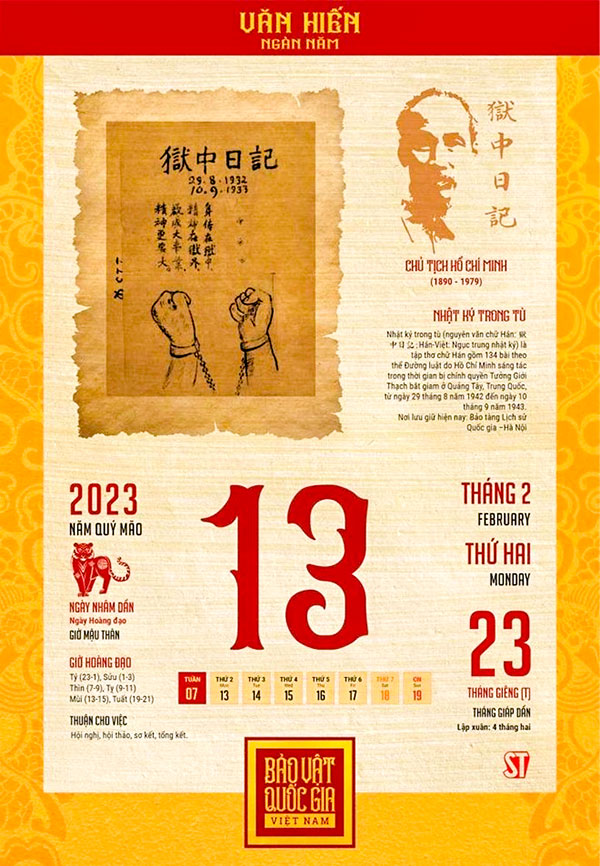 VĂN HIẾN
NGÀN NĂM
獄中日記
29.8.1932
10.9.1933
身体在獄中
精神在獄外
欲成大事業
精神更要大
獄中日記
CHỦ TỊCH HỒ CHÍ MINH
(1890 - 1979)
NHẬT KÝ TRONG TÙ
Nhật ký trong tù (nguyên văn chữ Hán: 獄
中日記; Hán-Việt: Ngục trung nhật ký) là
tập thơ chữ Hán gồm 134 bài theo
thể Đường luật do Hồ Chí Minh sáng tác
trong thời gian bị chính quyền Tưởng Giới
Thạch bắt giam ở Quảng Tây, Trung Quốc,
từ ngày 29 tháng 8 năm 1942 đến ngày 10
tháng 9 năm 1943.
Nơi lưu giữ hiện nay: Bảo tàng Lịch sử
Quốc gia –Hà Nội
2023
NĂM QUÝ MÃO
NGÀY NHÂM DẦN
Ngày Hoàng đạo
GIỜ MẬU THÂN
GIỜ HOÀNG ĐẠO
Tý (23-1), Sửu (1-3)
Thìn (7-9), Tỵ (9-11)
Mùi (13-15), Tuất (19-21)
THUẬN CHO VIỆC
Hội nghị, hội thảo, sơ kết, tổng kết.
13
TUẦN THỨ 2 THỨ 3 THỨ 4 THỨ 5 THỨ 6 THỨ 7 CN
Mon Tue Wed Thu Fri Sat Sun
07 13 14 15 16 17 18 19
THÁNG 2
FEBRUARY
THỨ HAI
MONDAY
23
THÁNG GIÊNG (T)
THÁNG GIÁP DẦN
Lập xuân: 4 tháng hai
ST
BẢO VẬT
QUỐC GIA
VIỆT NAM